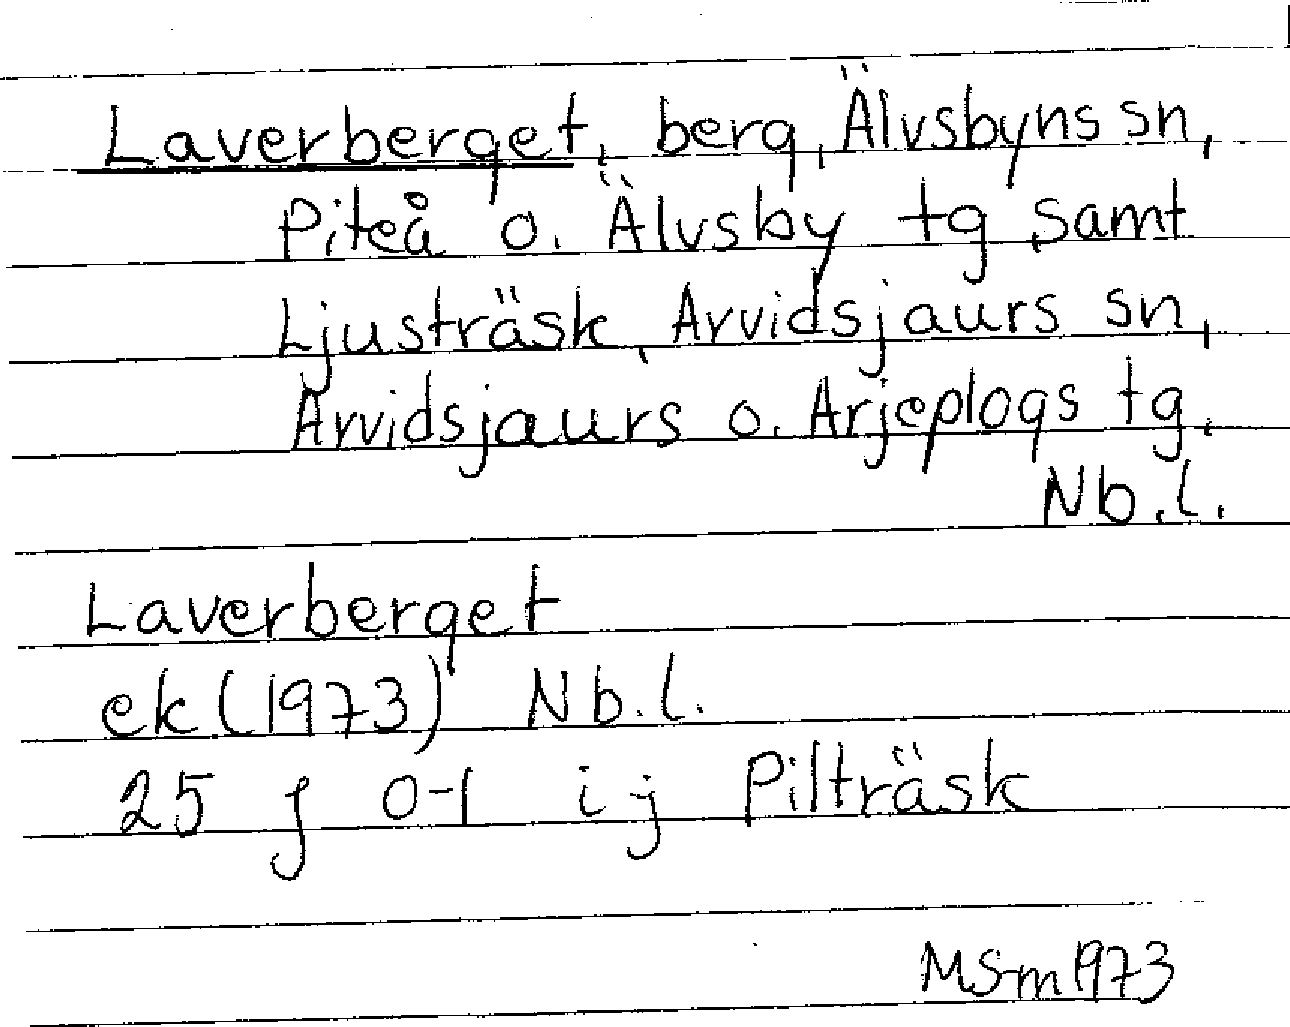 Laverberget, berg, Älvsbyns sn,
Piteå o. Älvsby tg samt
Ljusträsk, Arvidsjaurs sn,
Arvidsjaurs o. Arjeplogs tg.
Nb.l.
Laverberget
ek (1973) Nb.l.
25 J 0-1 i-j Pilträsk
MSm 1973